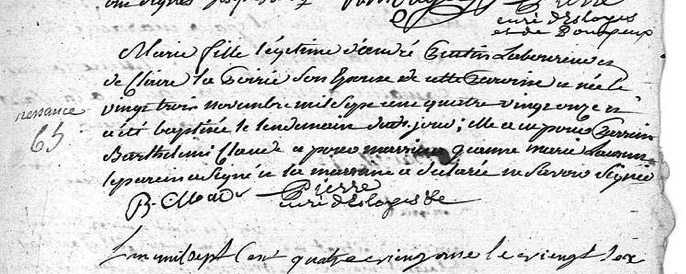 Pierre
curé d'Esloyes
et de Pouxeux
Marie fille légitime d'André Laboureur
de Claire la Poirée son Epouse de cette Paroisse est née le
naissance vingt trois novembre mil sept cent quatre vingt onze et
65 a été baptisée le lendemain dud. jour; elle a eu pour Parrain
Barthelemi Claude a pour marraine jeanne marie
le parein a signé et la marraine a déclarée ne savoir signée
B. Claude Pierre
curé d'Esloyes &c
L'an mil sept Cent quatre vingt onze le vingt six